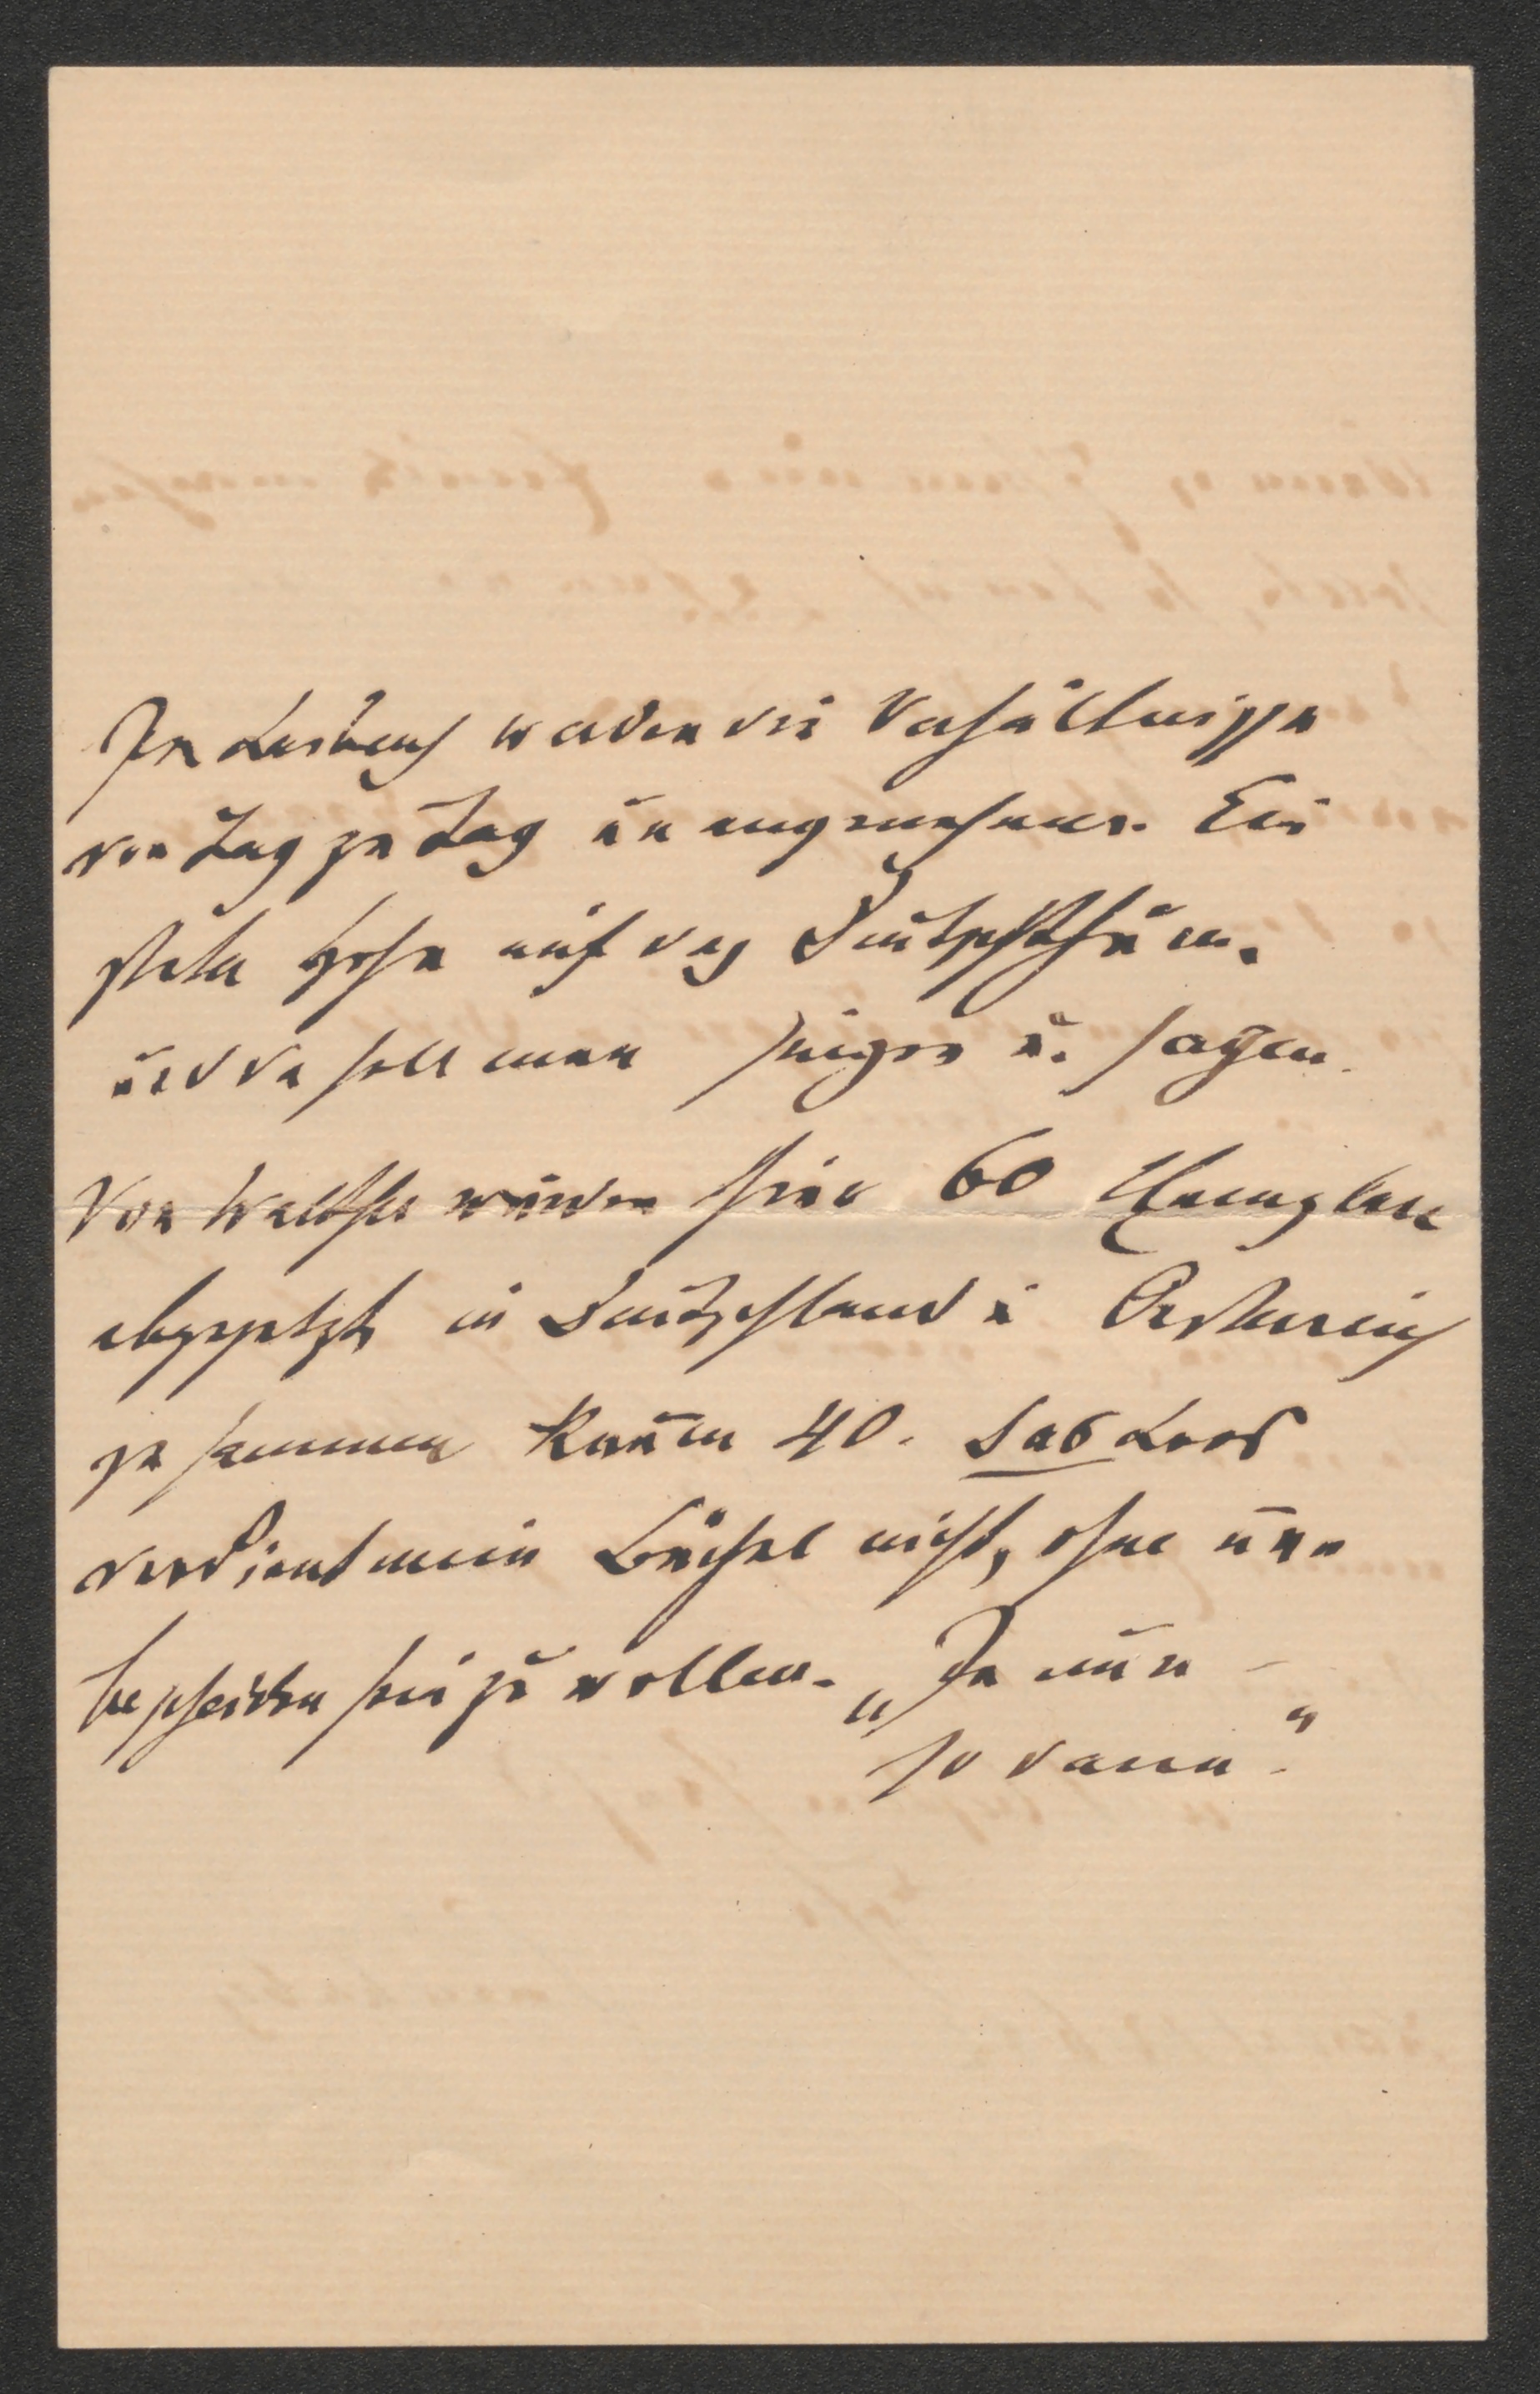 In Laibach werden die Verhältnisse
von Tag zu Tag unangenehmer. Ein
steter Hohn auf das Deutschthum.
und da soll man singen u. sagen.
Von Walther wurden hier 60 Exemplare
abgesetzt in Deutschland u Oesterreich
zusammen kaum 40. Das Loos
verdient mein Büchel nicht, ohne un-
bescheiden sein zu wollen. „Ja nun –
so dann“.